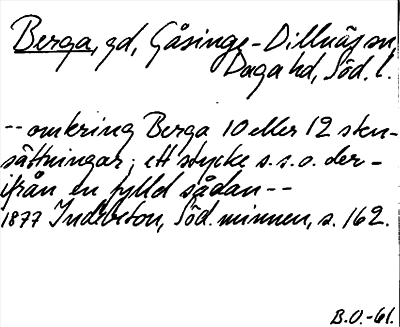 Berga, gd, Gåsinge-Dillnäs sn,
Daga hd, Söd. l.
-- omkring Berga 10 eller 12 sten-
sättningar; ett stycke s.s.o. der-
ifrån en fylld sådan --
1877 Indebetou, Söd. minnen, s. 162.
B.O.-61.